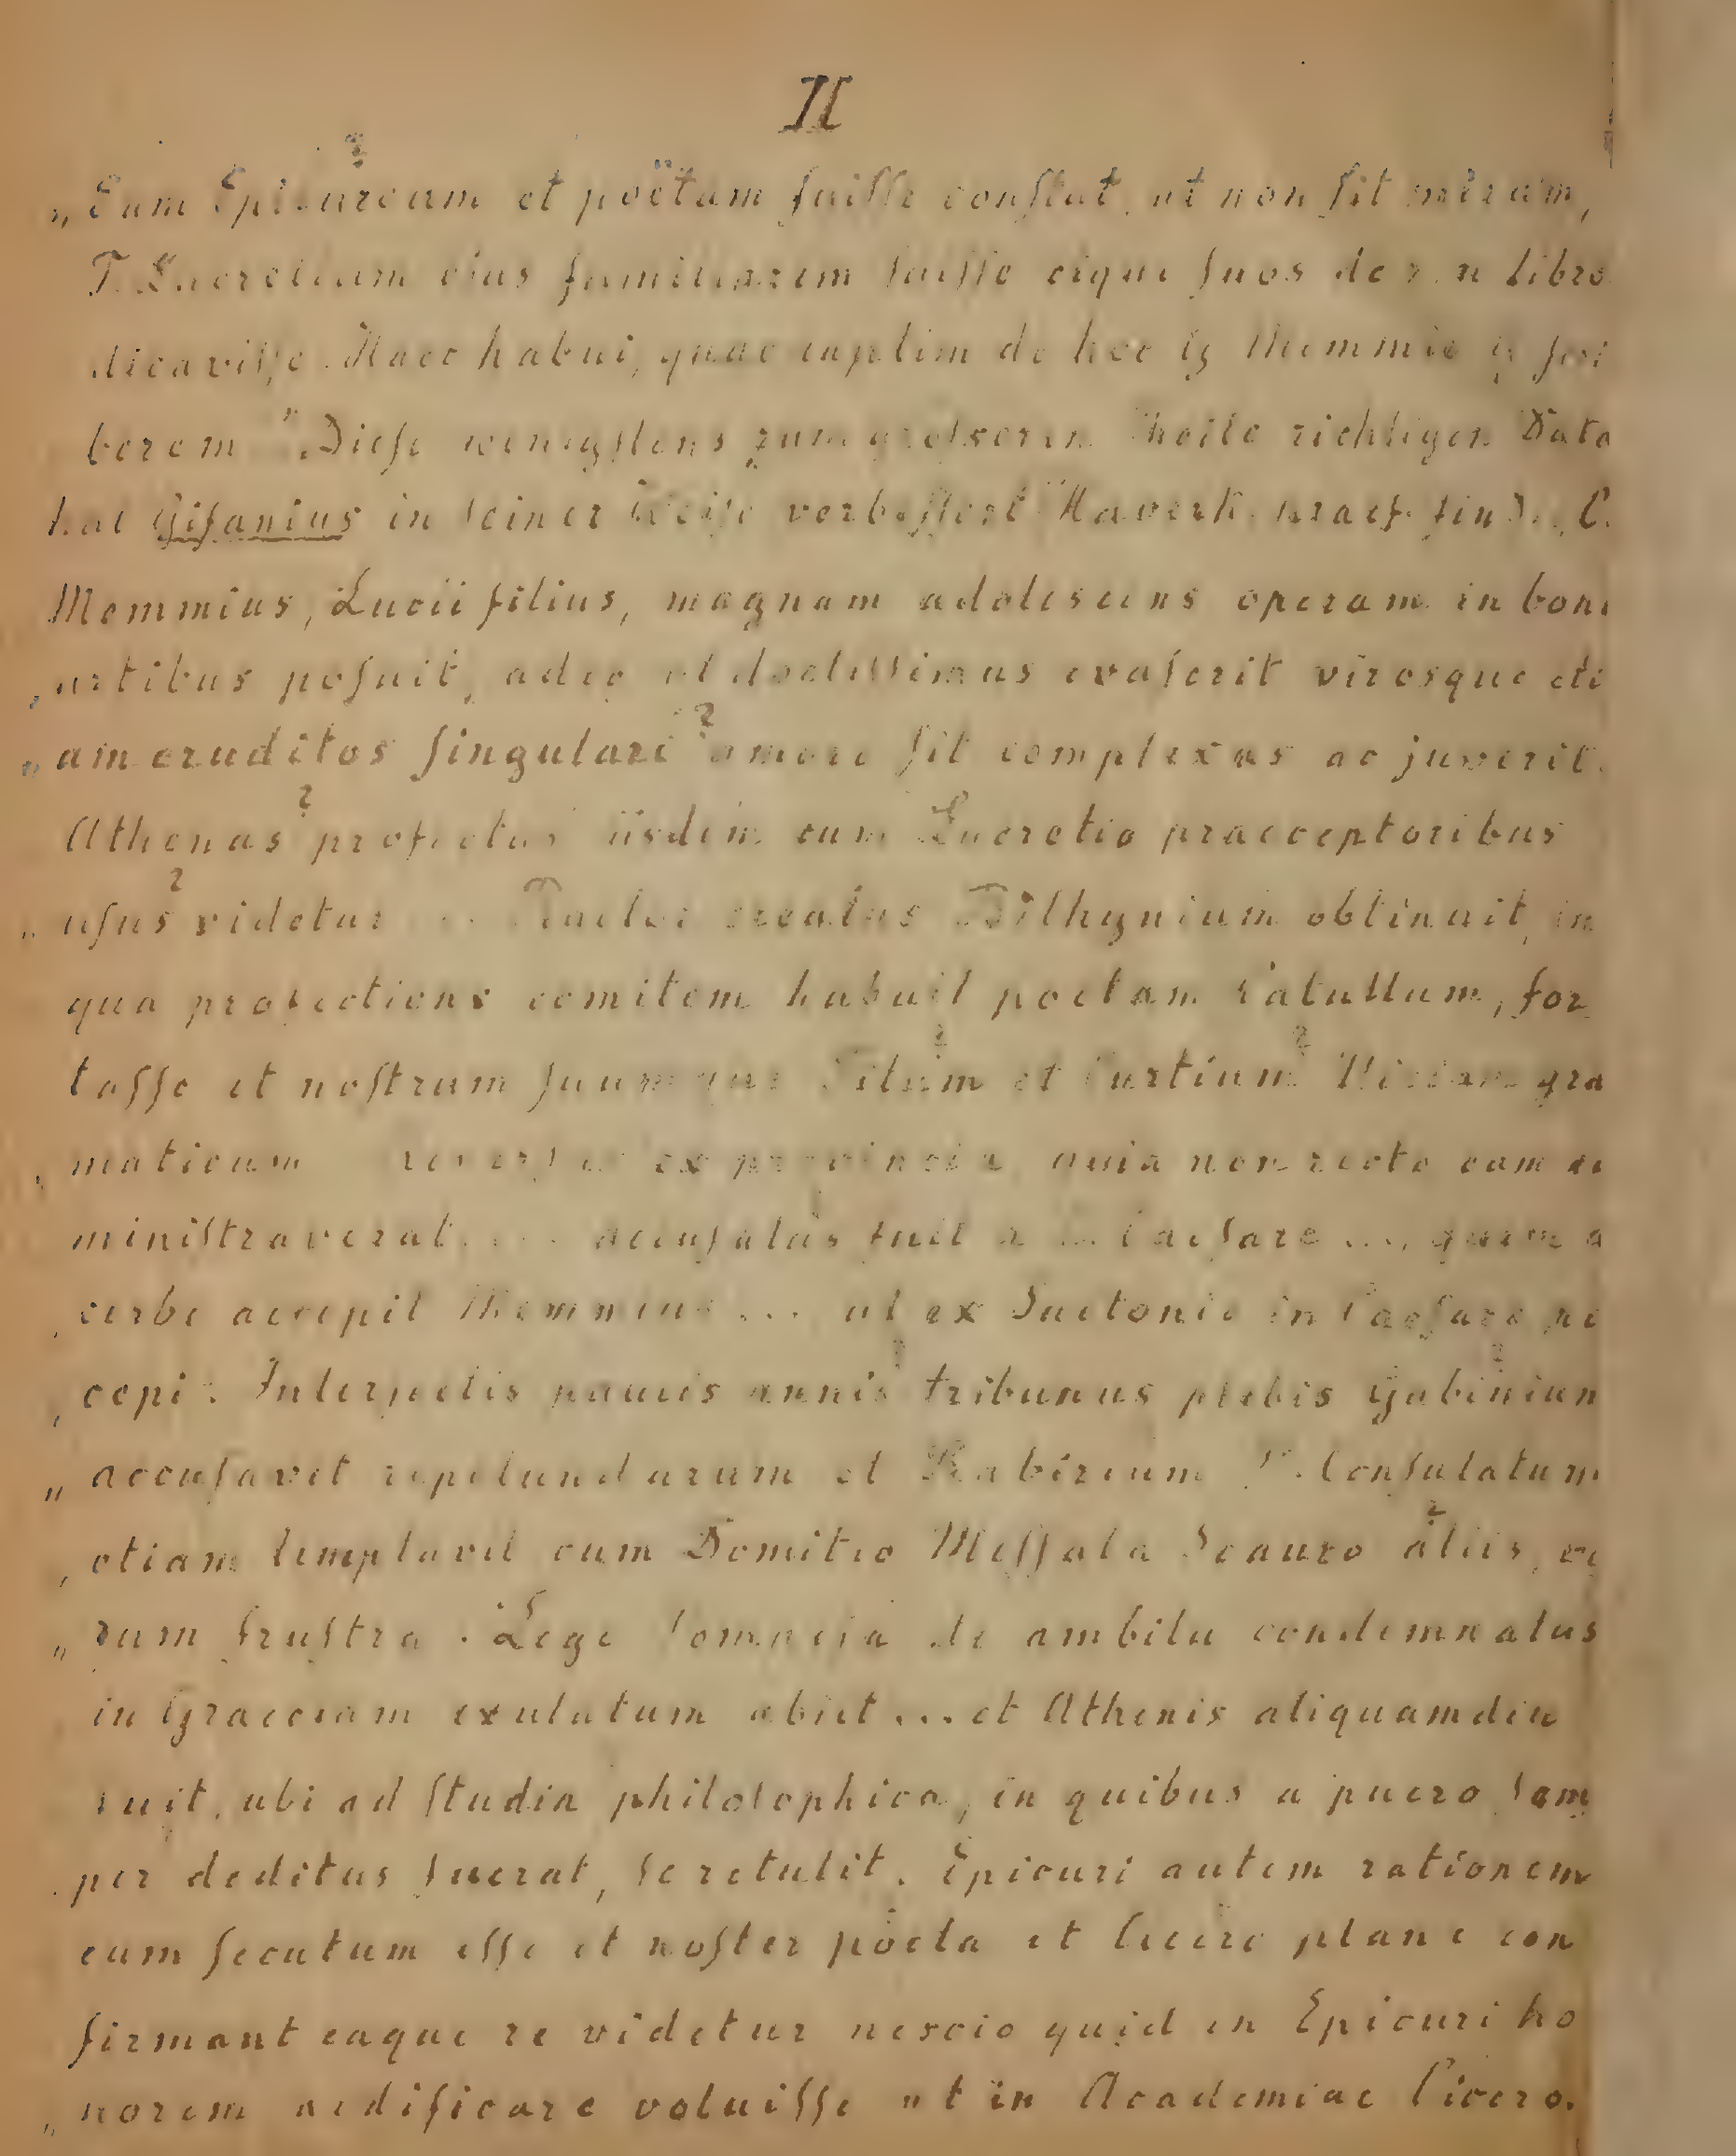 II
„ Eum Epicureum et poëtam fuiſſe conſtat, ut non ſit mirum,
T. Lucretium eius familiarem fuiſſe eique ſuos de r. n libro
dicaviſſe. Haec habui, quae raptim de hoc G Memmio G ſcri
berem" Dieſe wenigſtens zum groſseren Theile richtigen Data
hat Gifanius in ſeiner Weiſe verbeſſert Haverk. praef. C.
Memmius, Lucii filius, magnam adoleſcens operam in boni
„ artibus poſuit, adeo ut doctiſſimus evaſerit virosque eti
„ am eruditos ſingulari ? amore ſit complexus ac juverit.
Athenas ? profectus iisdem cum Lucretio praeceptoribus
„ uſus ? videtur ... Praetor creatus Bithyniam obtinuit, in
qua profectione comitem habuit poetam Catullum, for
taſſe et noſtrum ſuumque Titum ? et Curtium ? Niciam gra
„ maticum reverſus ex provincia, quia non recte eam ad
miniſtraverat .... accuſatus fuit a C. Caeſare ..., quem a
„ cerbe accepit Memmius ... ut ex Suetonio in Caeſare pe
„ cepi. Interjectis paucis annis ? tribunus plebis Gabinium ?
„ accuſavit repetundarum et Rabirium P. Conſulatum
„ etiam temptavit cum Domitio Meſſala Scauro aliis, ? ve
„ rum fruſtra. Lege Pompeia de ambitu condemnatus
in Graeciam exulatum abiit ... et Athenis aliquamdiu
fuit, ubi ad ſtudia philoſophica, in quibus a puero ſem
„ per deditus fuerat, ſe retulit. Epicuri autem rationem
eum ſecutum eſſe et noſter poëta et Cicero plane con
firmant eaque re videtur neſcio quid in Epicuri ho
„ norem aedificare voluiſſe ut in Academiae Cicero.